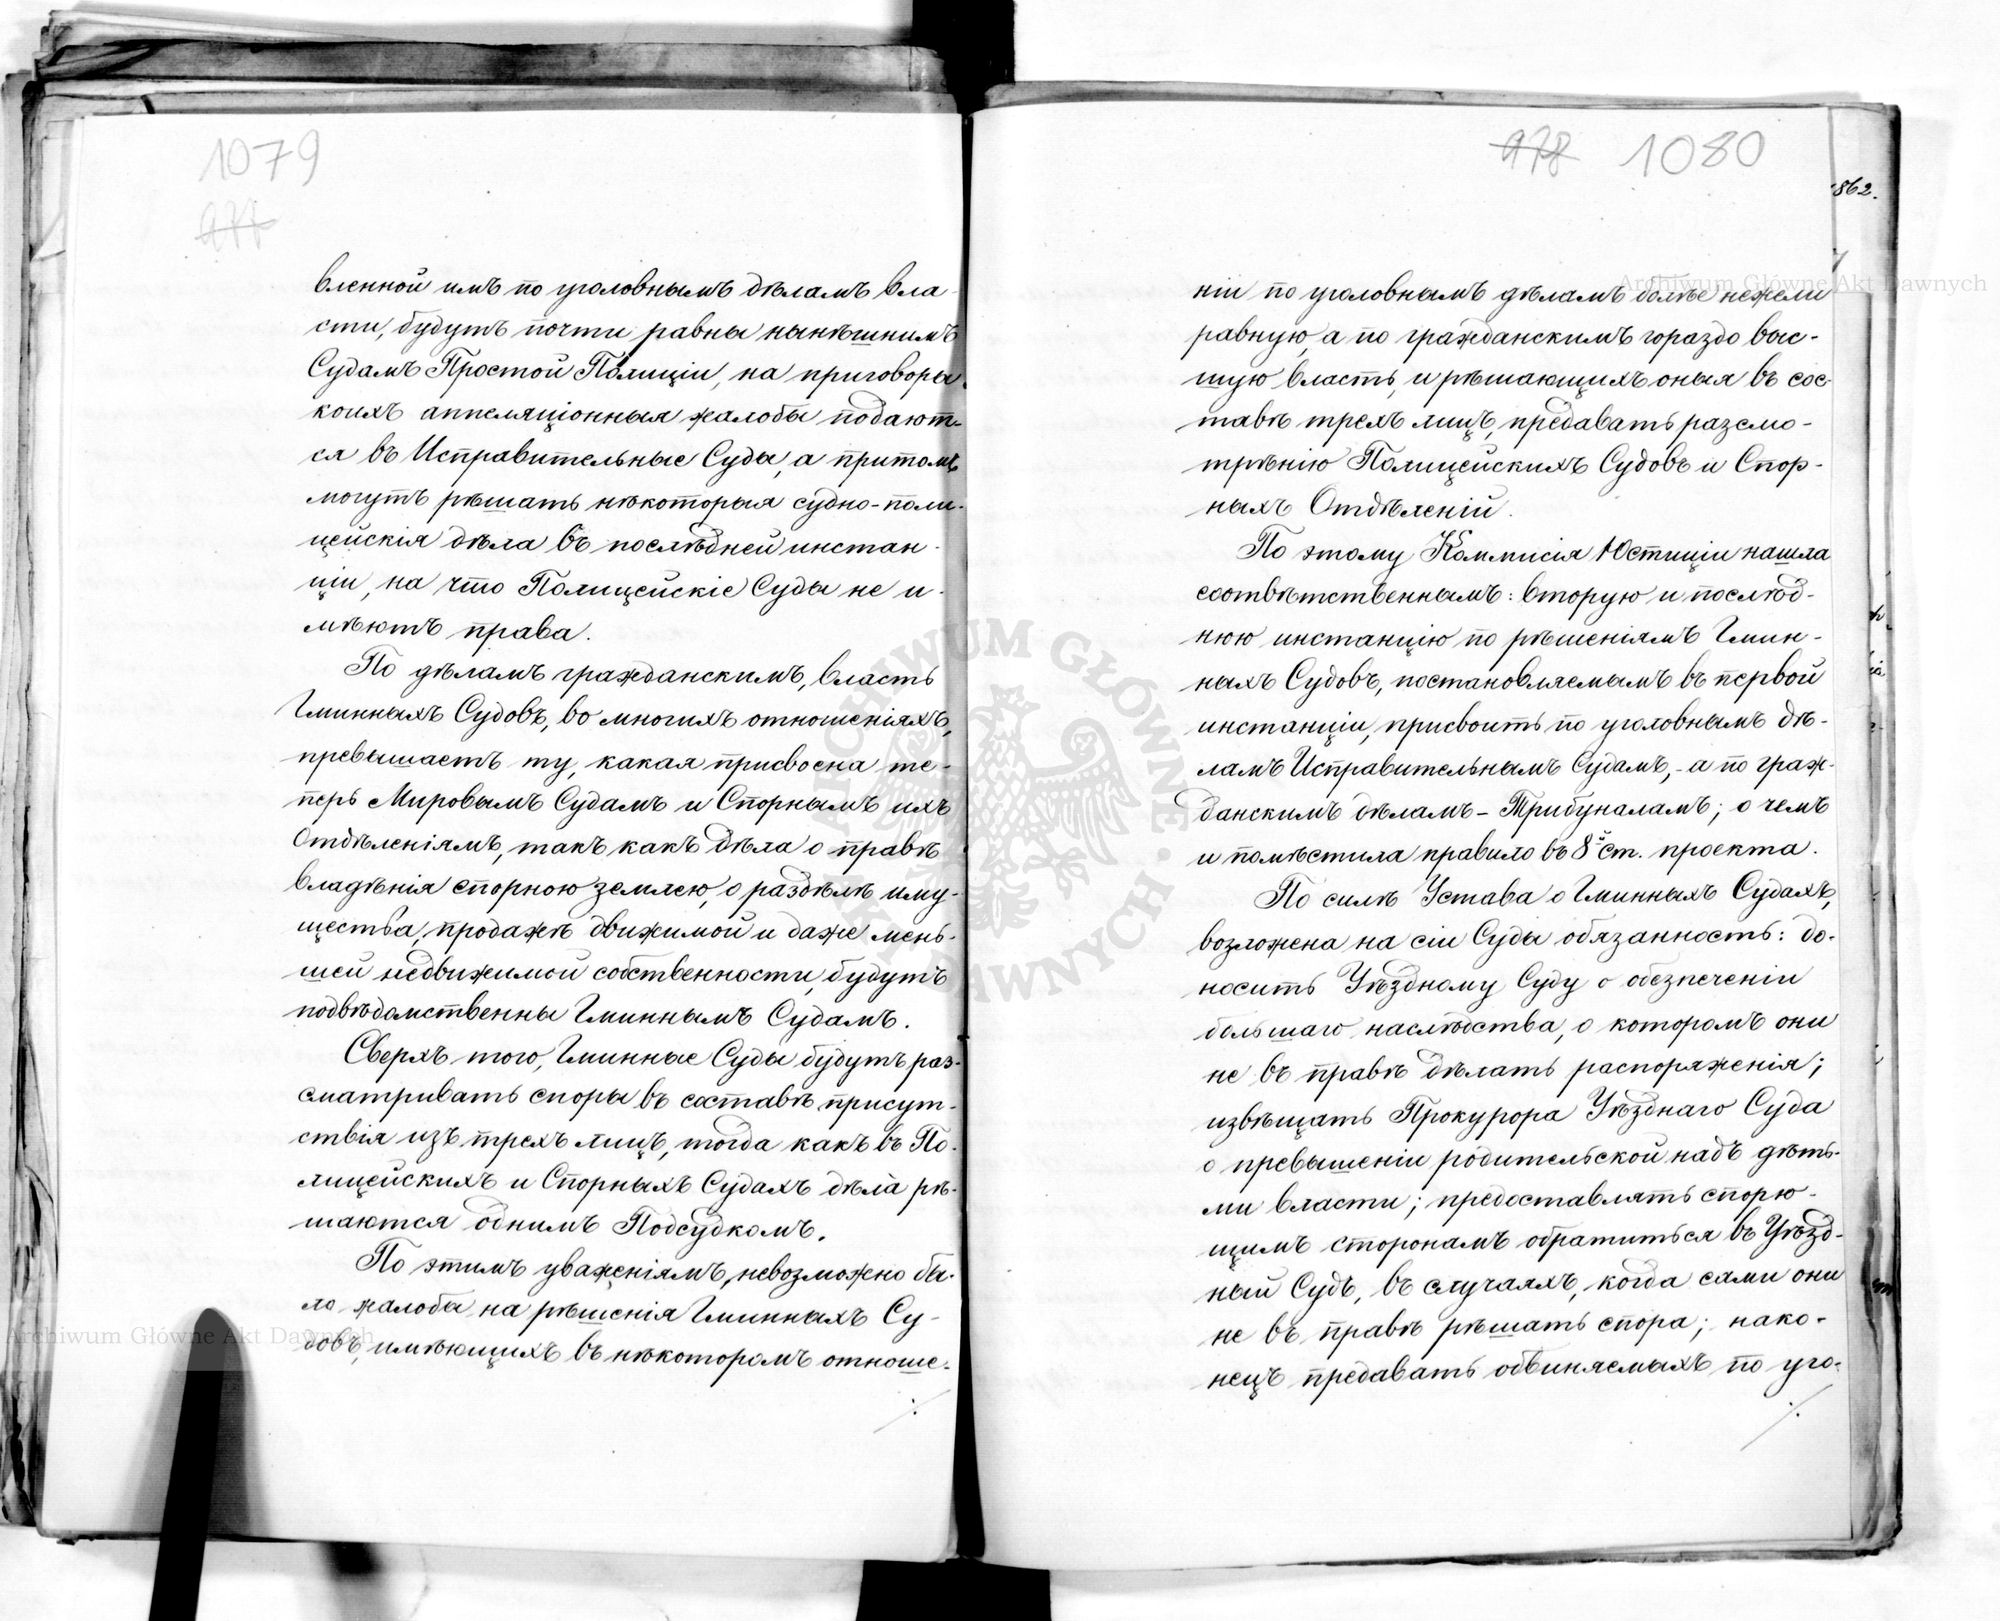 1079
977
вленной имъ по уголовнымъ дѣламъ вла-
сти, будутъ почти равны нынѣшнимъ
Судамъ Простой Полиціи, на приговоры
коихъ аппеляціонныя жалобы подают-
ся въ Исправительные Суды, а притомъ
могутъ рѣшать нѣкоторыя судно-поли-
цейскія дѣла въ послѣдней инстан-
ціи, на что Полицейскіе Суды не и-
мѣютъ права.
По дѣламъ гражданскимъ, власть
Гминныхъ Судовъ, во многихъ отношеніяхъ,
превышаетъ ту, какая присвоена те-
перь Мировымъ Судамъ и Спорнымъ ихъ
Отдѣленіямъ, такъ какъ дѣла о правѣ
владѣнія спорною землею, о раздѣлѣ иму-
щества, продажѣ движимой и даже мень-
шей недвижимой собственности, будутъ
подвѣдомственны Гминнымъ Судамъ.
Сверхъ того, Гминные Суды будутъ раз-
сматривать споры въ составѣ присут-
ствія изъ трехъ лицъ, тогда какъ въ По-
лицейскихъ и Спорныхъ Судахъ дѣла рѣ-
шаются однимъ Подсудкомъ.
По этимъ уваженіямъ, невозможно бы-
ло жалобы на рѣшенія Гминныхъ Су-
довъ, имѣющихъ въ нѣкоторомъ отноше-
978 1080
862.
ніи по уголовнымъ дѣламъ болѣе нежели
равную, а по гражданскимъ гораздо выс-
шую власть, и рѣшающихъ оныя въ сос-
тавѣ трехъ лицъ, предавать разсмо-
трѣнію Полицейскихъ Судовъ и Спор-
ныхъ Отдѣленій.
По этому Коммисія Юстиціи нашла
соотвѣтственнымъ: вторую и послѣд-
нюю инстанцію по рѣшеніямъ Гмин-
ныхъ Судовъ, постановляемымъ въ первой
инстанціи, присвоить по уголовнымъ дѣ-
ламъ Исправительнымъ Судамъ, - а по граж-
данскимъ дѣламъ - Трибуналамъ; о чемъ
и помѣстила правило въ 8й ст. проекта.
По силѣ Устава о Гминныхъ Судахъ,
возложена на сіи Суды обязанность: до-
носить Уѣздному Суду о обезпеченіи
большаго наслѣдства, о которомъ они
не въ правѣ дѣлать распоряженія;
извѣщать Прокурора Уѣзднаго Суда
о превышеніи родительской надъ дѣть-
ми власти; предоставлять спорю-
щимъ сторонамъ обратиться въ Уѣзд-
ный Судъ, въ случаяхъ, когда сами они
не въ правѣ рѣшать спора; нако-
нецъ предавать обвиняемыхъ по уго-
Archiwum Główne Akt Dawnych
Archiwum Główne Akt Dawnych
ARCHIWUM GŁÓWNE AKT DAWNYCH